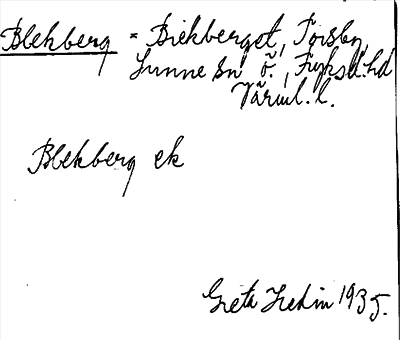 Blekberg = Birkberget, Torsby,
Sunne sn ö., Fryksd. hd
Värml. l.
Blekberg ek
Greta Hedin 1935.